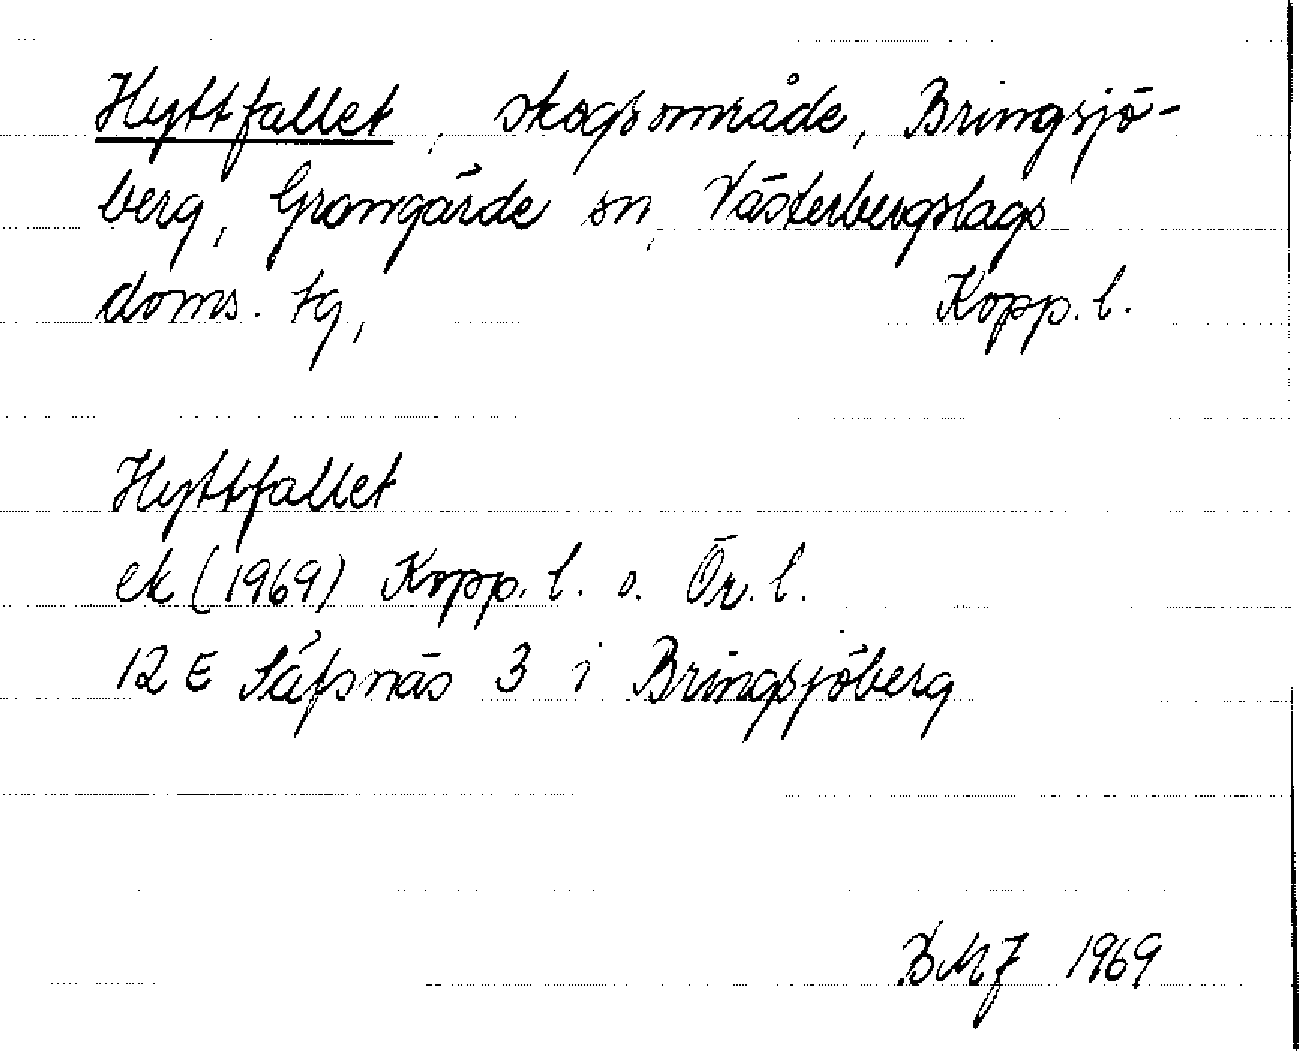 Hyttfallet, skogsområde, Bringsjö-
berg, Grangärde sn, Västerbergslags
doms. tg, Kopp. l.
Hyttfallet
ek (1969) Kopp. l. o. Ör. l.
12 E Säfsnäs 3 i Bringsjöberg
BMJ 1969